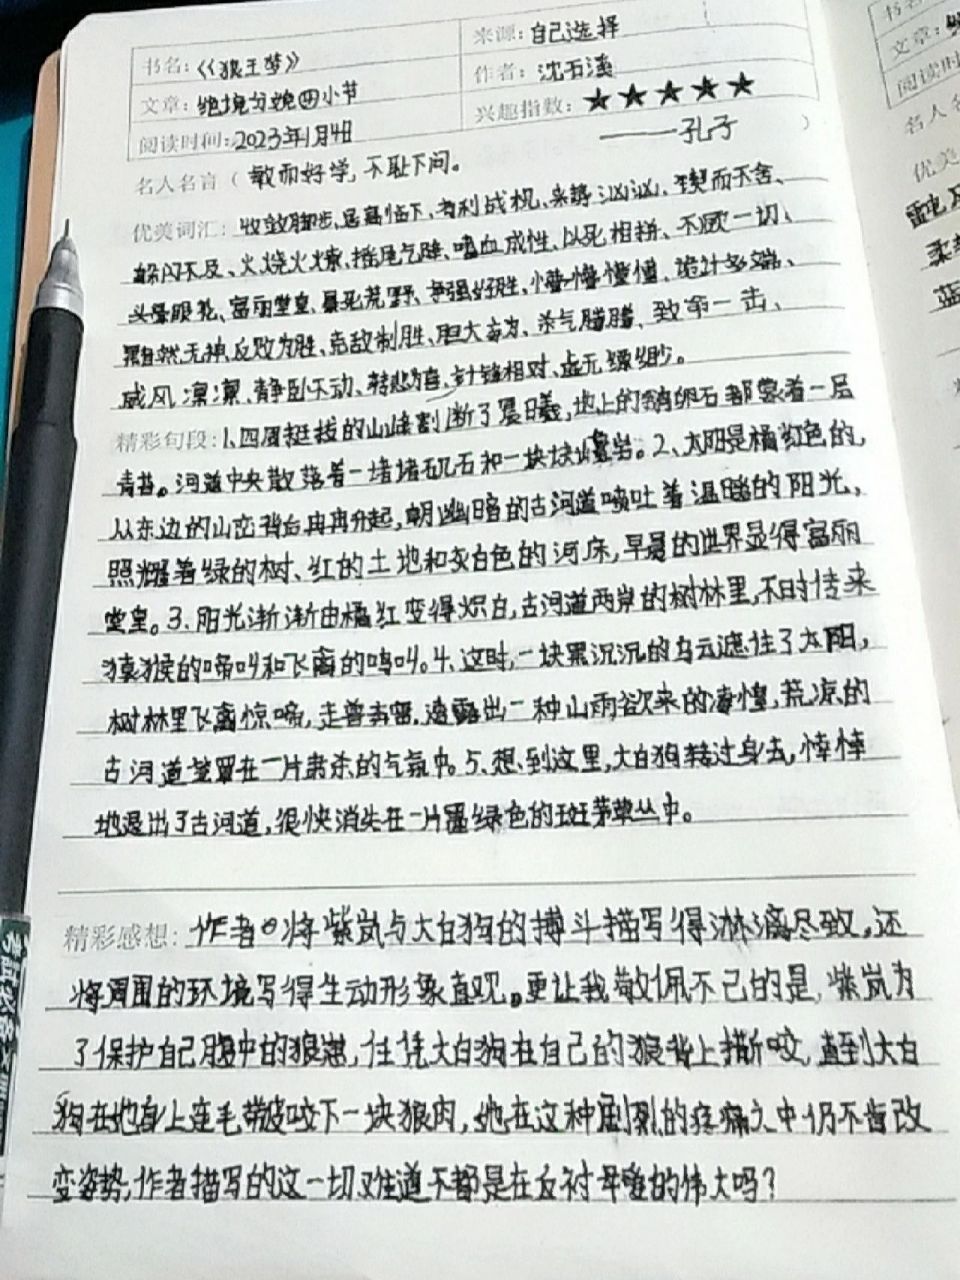 书名:《狼王梦》
来源:自己选择
文章:绝境分娩四小节
作者:沈石溪
阅读时间:2023年1月4日
兴趣指数:★★★★★
——孔子
名人名言( 敏而好学,不耻下问。 )
优美词汇:收敛脚步、居高临下、有利战机、来势汹汹、锲而不舍、
躲闪不及、火烧火燎、摇尾乞降、嗜血成性、以死相拼、不顾一切、
头晕眼花、富丽堂皇、暴死荒野、争强好胜、懵懵懂懂、诡计多端、
黯然无神、反败为胜、克敌制胜、胆大妄为、杀气腾腾、致命一击、
威风凛凛、静卧不动、转悲为喜、针锋相对、虚无缥缈。
精彩句段:1、四周挺拔的山峰割断了晨曦,地上的鹅卵石都蒙着一层
青苔。河道中央散落着一堆堆矶石和一块块礁岩。2、太阳是橘红色的,
从东边的山峦背后冉冉升起,朝幽暗的古河道喷吐着温暖的阳光,
照耀着绿的树、红的土地和灰白色的河床,早晨的世界显得富丽
堂皇。3、阳光渐渐由橘红变得炽白,古河道两岸的树林里,不时传来
猿猴的啼叫和飞禽的鸣叫。4、这时,一块黑沉沉的乌云遮住了太阳,
树林里飞禽惊啼,走兽奔窜,透露出一种山雨欲来的凄惶,荒凉的
古河道笼罩在一片肃杀的气氛中。5、想到这里,大白狗转过身去,悻悻
地退出了古河道,很快消失在一片墨绿色的斑茅草丛中。
精彩感想:作者将紫岚与大白狗的搏斗描写得淋漓尽致,还
将周围的环境写得生动形象直观。更让我敬佩不已的是,紫岚为
了保护自己腹中的狼崽,任凭大白狗在自己的狼背上撕咬,直到大白
狗在她身上连毛带皮咬下一块狼肉,她在这种剧烈的疼痛之中仍不肯改
变姿势,作者描写的这一切难道不都是在反衬母爱的伟大吗?